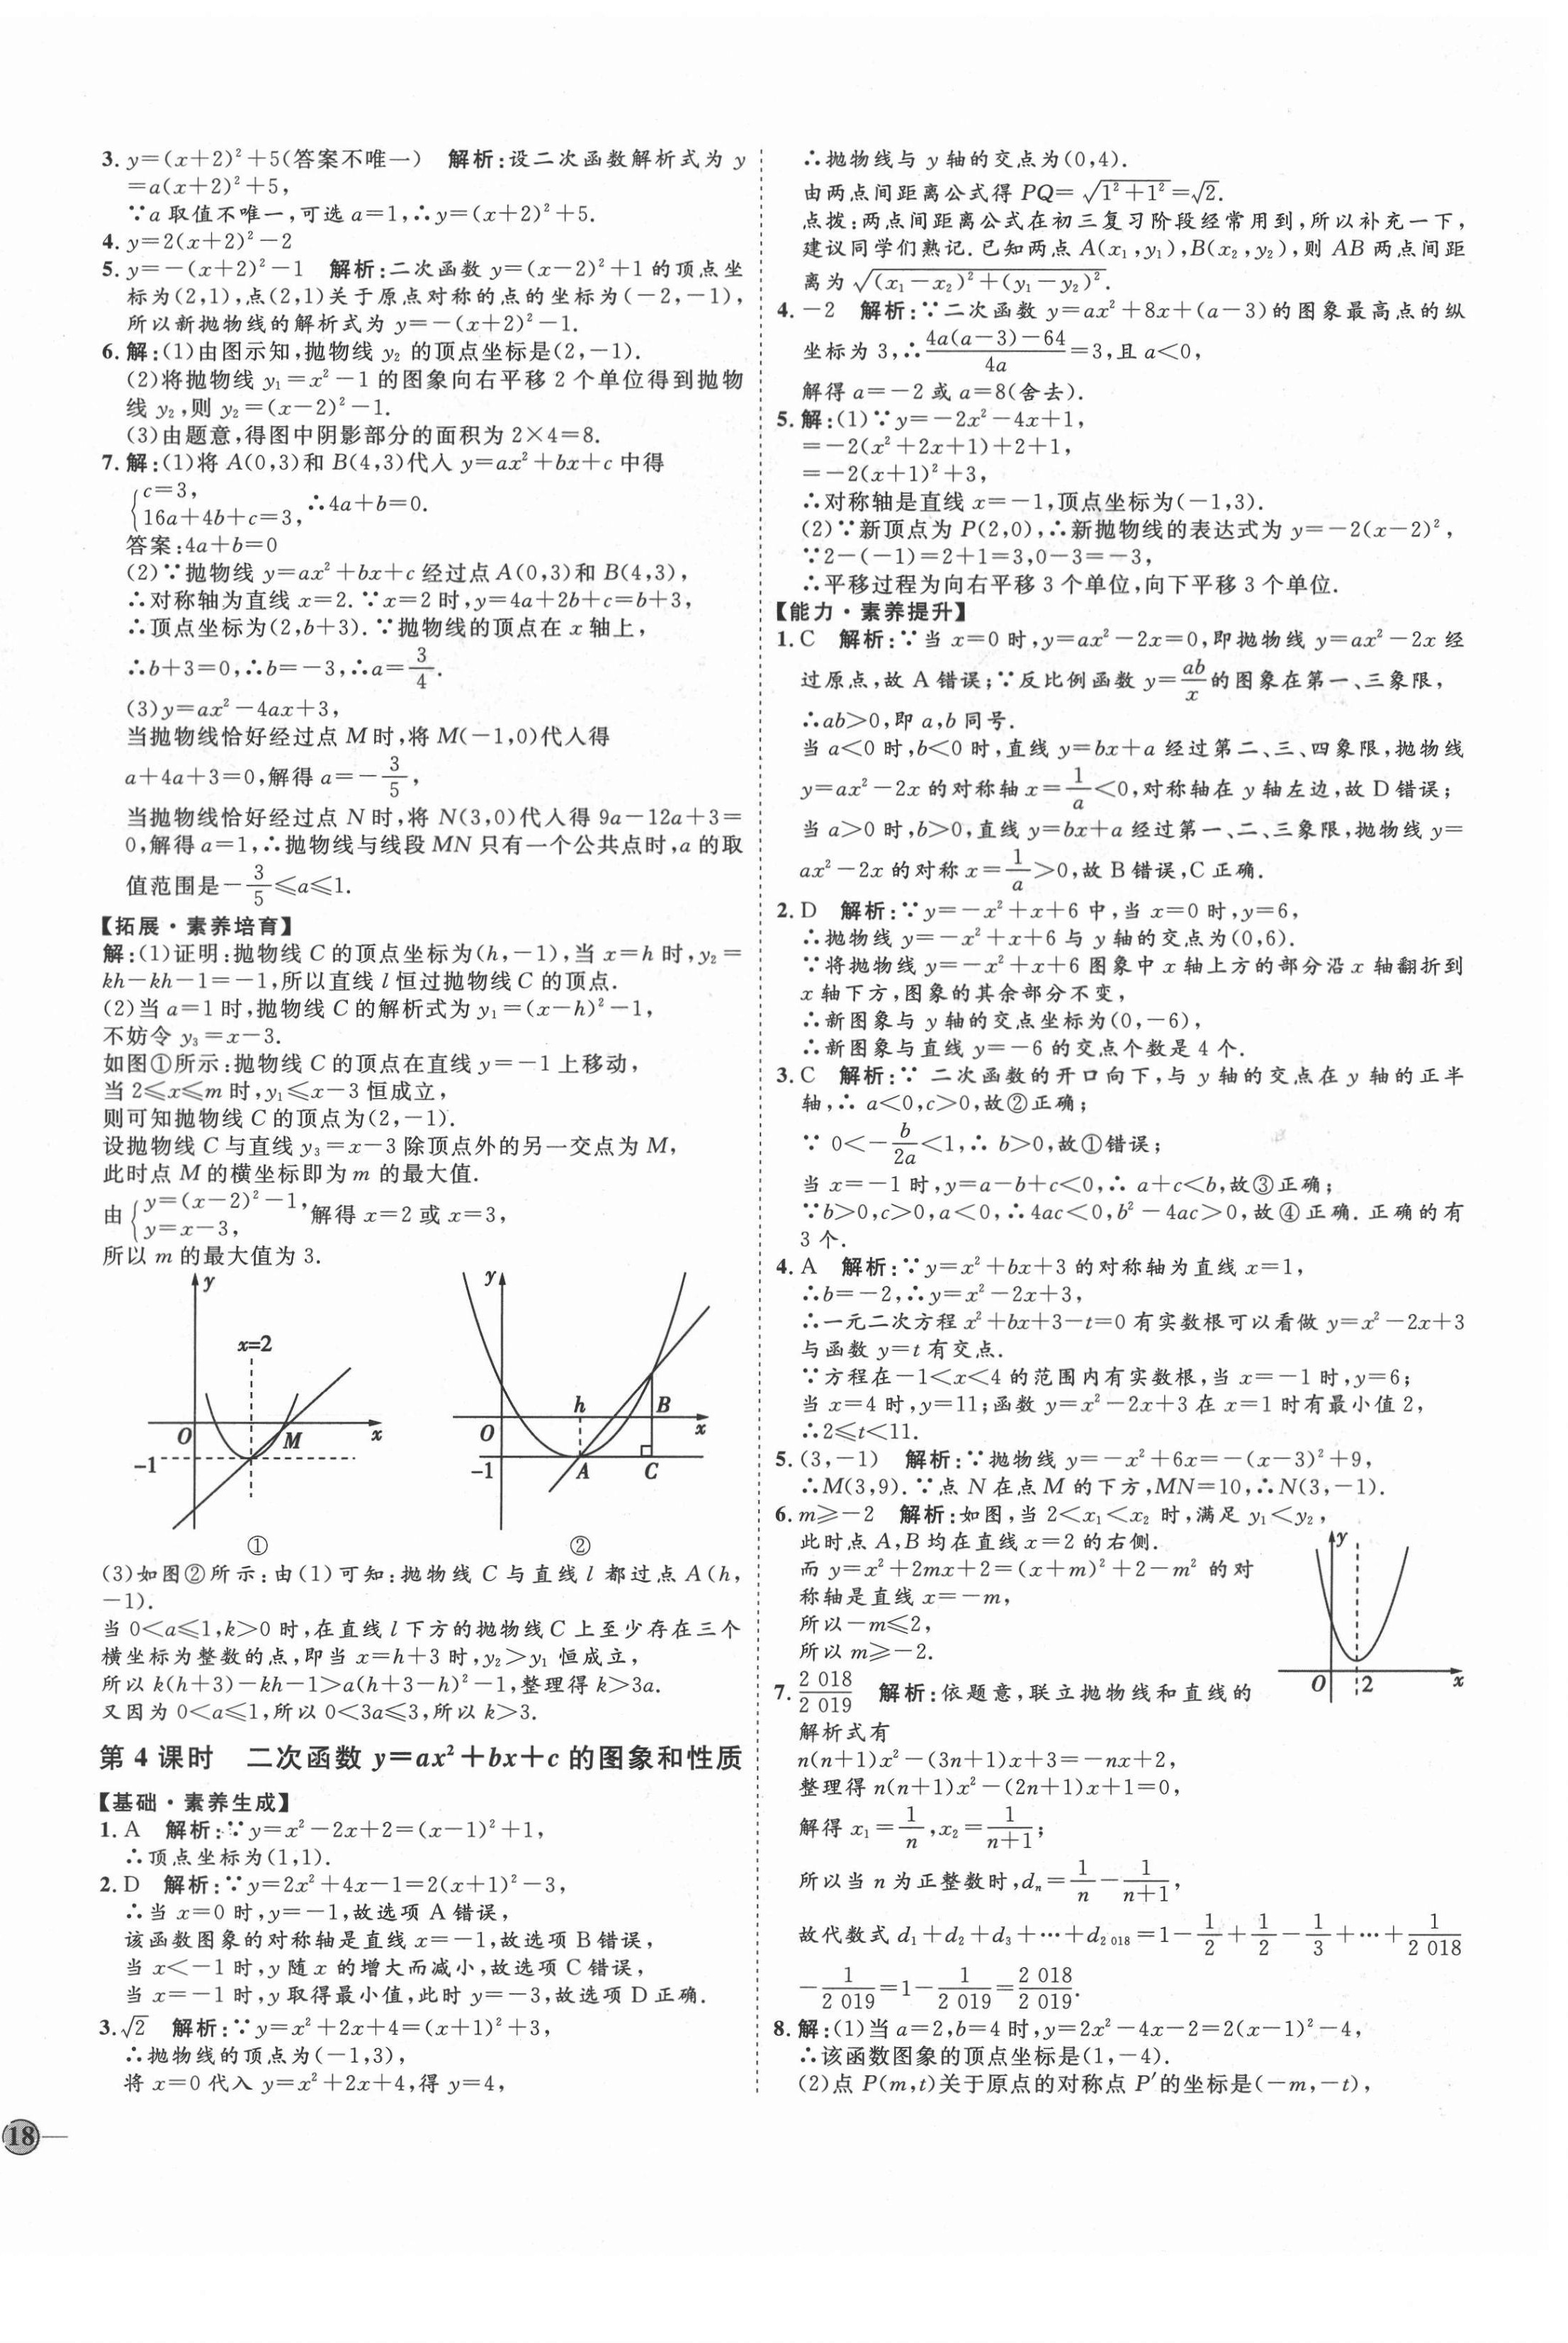 3. y=(x+2)²+5(答案不唯一)　解析:设二次函数解析式为 y
=a(x+2)²+5,
∵a 取值不唯一,可选 a=1,∴y=(x+2)²+5.
4. y=2(x+2)²-2
5. y=-(x+2)²-1　解析:二次函数 y=(x-2)²+1 的顶点坐
标为(2,1),点(2,1)关于原点对称的点的坐标为(-2,-1),
所以新抛物线的解析式为 y=-(x+2)²-1.
6. 解:(1)由图示知,抛物线 y₂ 的顶点坐标是(2,-1).
(2)将抛物线 y₁=x²-1 的图象向右平移 2 个单位得到抛物
线 y₂,则 y₂=(x-2)²-1.
(3)由题意,得图中阴影部分的面积为 2×4=8.
7. 解:(1)将 A(0,3)和 B(4,3)代入 y=ax²+bx+c 中得
{c=3,
16a+4b+c=3, ∴4a+b=0.
答案:4a+b=0
(2)∵抛物线 y=ax²+bx+c 经过点 A(0,3)和 B(4,3),
∴对称轴为直线 x=2. ∵x=2 时,y=4a+2b+c=b+3,
∴顶点坐标为(2,b+3). ∵抛物线的顶点在 x 轴上,
∴b+3=0,∴b=-3,∴a=3/4.
(3)y=ax²-4ax+3,
当抛物线恰好经过点 M 时,将 M(-1,0)代入得
a+4a+3=0,解得 a=-3/5,
当抛物线恰好经过点 N 时,将 N(3,0)代入得 9a-12a+3=
0,解得 a=1,∴抛物线与线段 MN 只有一个公共点时,a 的取
值范围是-3/5≤a≤1.
【拓展·素养培育】
解:(1)证明:抛物线 C 的顶点坐标为(h,-1),当 x=h 时,y₂=
kh-kh-1=-1,所以直线 l 恒过抛物线 C 的顶点.
(2)当 a=1 时,抛物线 C 的解析式为 y₁=(x-h)²-1,
不妨令 y₃=x-3.
如图①所示:抛物线 C 的顶点在直线 y=-1 上移动,
当 2≤x≤m 时,y₁≤x-3 恒成立,
则可知抛物线 C 的顶点为(2,-1).
设抛物线 C 与直线 y₃=x-3 除顶点外的另一交点为 M,
此时点 M 的横坐标即为 m 的最大值.
由{y=(x-2)²-1,
y=x-3, 解得 x=2 或 x=3,
所以 m 的最大值为 3.
y x=2 O M x -1 ①
y h B O x -1 A C ②
(3)如图②所示:由(1)可知:抛物线 C 与直线 l 都过点 A(h,
-1).
当 0<a≤1,k>0 时,在直线 l 下方的抛物线 C 上至少存在三个
横坐标为整数的点,即当 x=h+3 时,y₂>y₁ 恒成立,
所以 k(h+3)-kh-1>a(h+3-h)²-1,整理得 k>3a.
又因为 0<a≤1,所以 0<3a≤3,所以 k>3.
第 4 课时　二次函数 y=ax²+bx+c 的图象和性质
【基础·素养生成】
1. A　解析:∵y=x²-2x+2=(x-1)²+1,
∴顶点坐标为(1,1).
2. D　解析:∵y=2x²+4x-1=2(x+1)²-3,
∴当 x=0 时,y=-1,故选项 A 错误,
该函数图象的对称轴是直线 x=-1,故选项 B 错误,
当 x<-1 时,y 随 x 的增大而减小,故选项 C 错误,
当 x=-1 时,y 取得最小值,此时 y=-3,故选项 D 正确.
3. √2　解析:∵y=x²+2x+4=(x+1)²+3,
∴抛物线的顶点为(-1,3),
将 x=0 代入 y=x²+2x+4,得 y=4,
18
∴抛物线与 y 轴的交点为(0,4).
由两点间距离公式得 PQ=√(1²+1²)=√2.
点拨:两点间距离公式在初三复习阶段经常用到,所以补充一下,
建议同学们熟记. 已知两点 A(x₁,y₁),B(x₂,y₂),则 AB 两点间距
离为 √((x₁-x₂)²+(y₁-y₂)²).
4. -2　解析:∵二次函数 y=ax²+8x+(a-3)的图象最高点的纵
坐标为 3,∴(4a(a-3)-64)/4a=3,且 a<0,
解得 a=-2 或 a=8(舍去).
5. 解:(1)∵y=-2x²-4x+1,
=-2(x²+2x+1)+2+1,
=-2(x+1)²+3,
∴对称轴是直线 x=-1,顶点坐标为(-1,3).
(2)∵新顶点为 P(2,0),∴新抛物线的表达式为 y=-2(x-2)²,
∵2-(-1)=2+1=3,0-3=-3,
∴平移过程为向右平移 3 个单位,向下平移 3 个单位.
【能力·素养提升】
1. C　解析:∵当 x=0 时,y=ax²-2x=0,即抛物线 y=ax²-2x 经
过原点,故 A 错误;∵反比例函数 y=ab/x的图象在第一、三象限,
∴ab>0,即 a,b 同号.
当 a<0 时,b<0 时,直线 y=bx+a 经过第二、三、四象限,抛物线
y=ax²-2x 的对称轴 x=1/a<0,对称轴在 y 轴左边,故 D 错误;
当 a>0 时,b>0,直线 y=bx+a 经过第一、二、三象限,抛物线 y=
ax²-2x 的对称 x=1/a>0,故 B 错误,C 正确.
2. D　解析:∵y=-x²+x+6 中,当 x=0 时,y=6,
∴抛物线 y=-x²+x+6 与 y 轴的交点为(0,6).
∵将抛物线 y=-x²+x+6 图象中 x 轴上方的部分沿 x 轴翻折到
x 轴下方,图象的其余部分不变,
∴新图象与 y 轴的交点坐标为(0,-6),
∴新图象与直线 y=-6 的交点个数是 4 个.
3. C　解析:∵ 二次函数的开口向下,与 y 轴的交点在 y 轴的正半
轴,∴ a<0,c>0,故②正确;
∵ 0<-b/2a<1,∴ b>0,故①错误;
当 x=-1 时,y=a-b+c<0,∴ a+c<b,故③正确;
∵b>0,c>0,a<0,∴4ac<0,b²-4ac>0,故④正确. 正确的有
3 个.
4. A　解析:∵y=x²+bx+3 的对称轴为直线 x=1,
∴b=-2,∴y=x²-2x+3,
∴一元二次方程 x²+bx+3-t=0 有实数根可以看做 y=x²-2x+3
与函数 y=t 有交点.
∵方程在-1<x<4 的范围内有实数根,当 x=-1 时,y=6;
当 x=4 时,y=11;函数 y=x²-2x+3 在 x=1 时有最小值 2,
∴2≤t<11.
5. (3,-1)　解析:∵抛物线 y=-x²+6x=-(x-3)²+9,
∴M(3,9). ∵点 N 在点 M 的下方,MN=10,∴N(3,-1).
6. m≥-2　解析:如图,当 2<x₁<x₂ 时,满足 y₁<y₂,
此时点 A,B 均在直线 x=2 的右侧.
而 y=x²+2mx+2=(x+m)²+2-m² 的对
称轴是直线 x=-m,
所以-m≤2,
所以 m≥-2.
y O 2 x
7. 2 018/2 019　解析:依题意,联立抛物线和直线的
解析式有
n(n+1)x²-(3n+1)x+3=-nx+2,
整理得 n(n+1)x²-(2n+1)x+1=0,
解得 x₁=1/n,x₂=1/(n+1);
所以当 n 为正整数时,dₙ=1/n-1/(n+1),
故代数式 d₁+d₂+d₃+…+d₂ ₀₁₈=1-1/2+1/2-1/3+…+1/2 018
-1/2 019=1-1/2 019=2 018/2 019.
8. 解:(1)当 a=2,b=4 时,y=2x²-4x-2=2(x-1)²-4,
∴该函数图象的顶点坐标是(1,-4).
(2)点 P(m,t)关于原点的对称点 P′的坐标是(-m,-t),